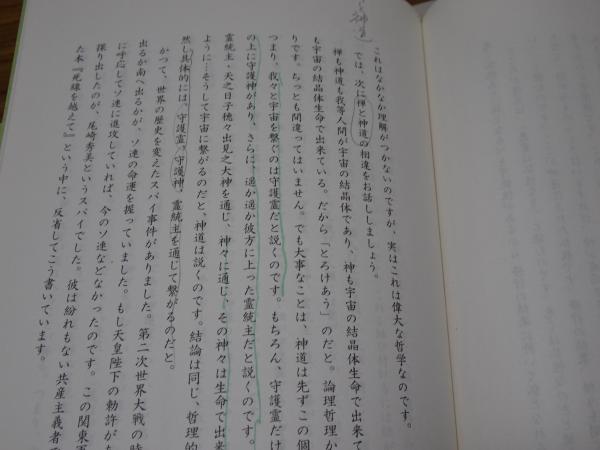 神道
これはなかなか理解がつかないのですが、実はこれは偉大な哲学なのです。
では、次に禅と神道の相違をお話ししましょう。
禅も神道も我等人間が宇宙の結晶体であり、神も宇宙の結晶体生命で出来て
も宇宙の結晶体生命で出来ている。だから「とろけあう」のだと。論理哲理か
りです。ちっとも間違ってはいません。でも大事なことは、神道は先ずこの個
つまり、我々と宇宙を繋ぐのは守護霊だと説くのです。もちろん、守護霊だけ
の上に守護神があり、さらに、遥か遥か彼方に上った霊統主だと説くのです。
霊統主・天之日子穂々出見之大神を通じ、神々に通じ、その神々は生命で出来
ように…そうして宇宙に繋がるのだと、神道は説くのです。結論は同じ、哲理的
然し具体的には、守護霊、守護神、霊統主を通じて繋がるのだと。
かつて、世界の歴史を変えたスパイ事件がありました。第二次世界大戦の時
出るか南へ出るかが、ソ連の命運を握っていました。もし天皇陛下の勅許がな
に呼応してソ連に進攻していれば、今のソ連などなかったのです。この関東軍
探り出したのが、尾崎秀美というスパイでした。彼は紛れもない共産主義者で
た本『死線を越えて』という中に、反省してこう書いています。